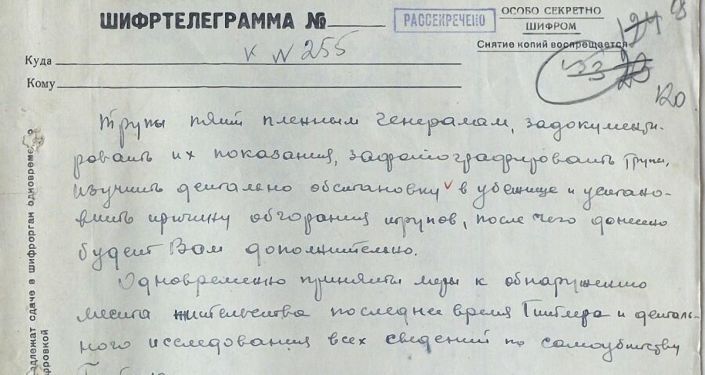 ШИФРТЕЛЕГРАММА №
РАССЕКРЕЧЕНО
ОСОБО СЕКРЕТНО
ШИФРОМ
Снятие копий воспрещается
к N 255
Куда
Кому
124
33
20
120
Трупы пяти пленным генералам, задокументи-
ровать их показания, зафотографировать трупы,
изучить детально обстановку в убежище и устано-
вить причину обгорания трупов, после чего донесено
будет Вам дополнительно.
Одновременно приняты меры к обнаружению
места жительства последнее время Гитлера и деталь-
ного исследования всех сведений по самоубийству
адлежат сдаче в шифрорган одновреме
фровкой